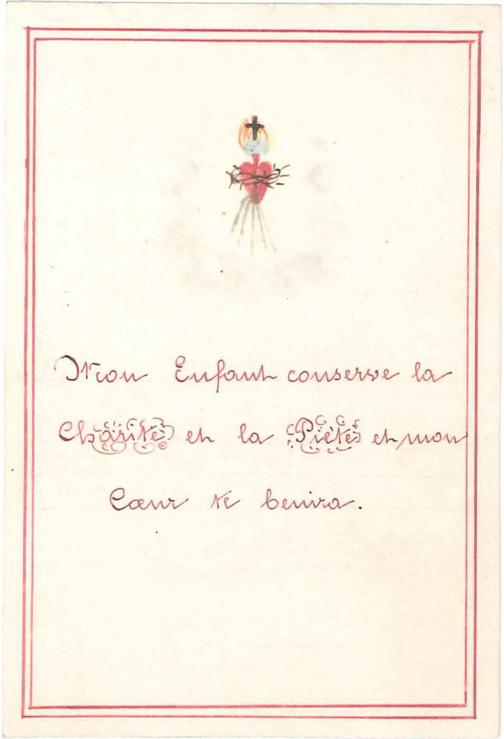 Mon Enfant conserve la
Charité et la Piété et mon
Cœur te benira.